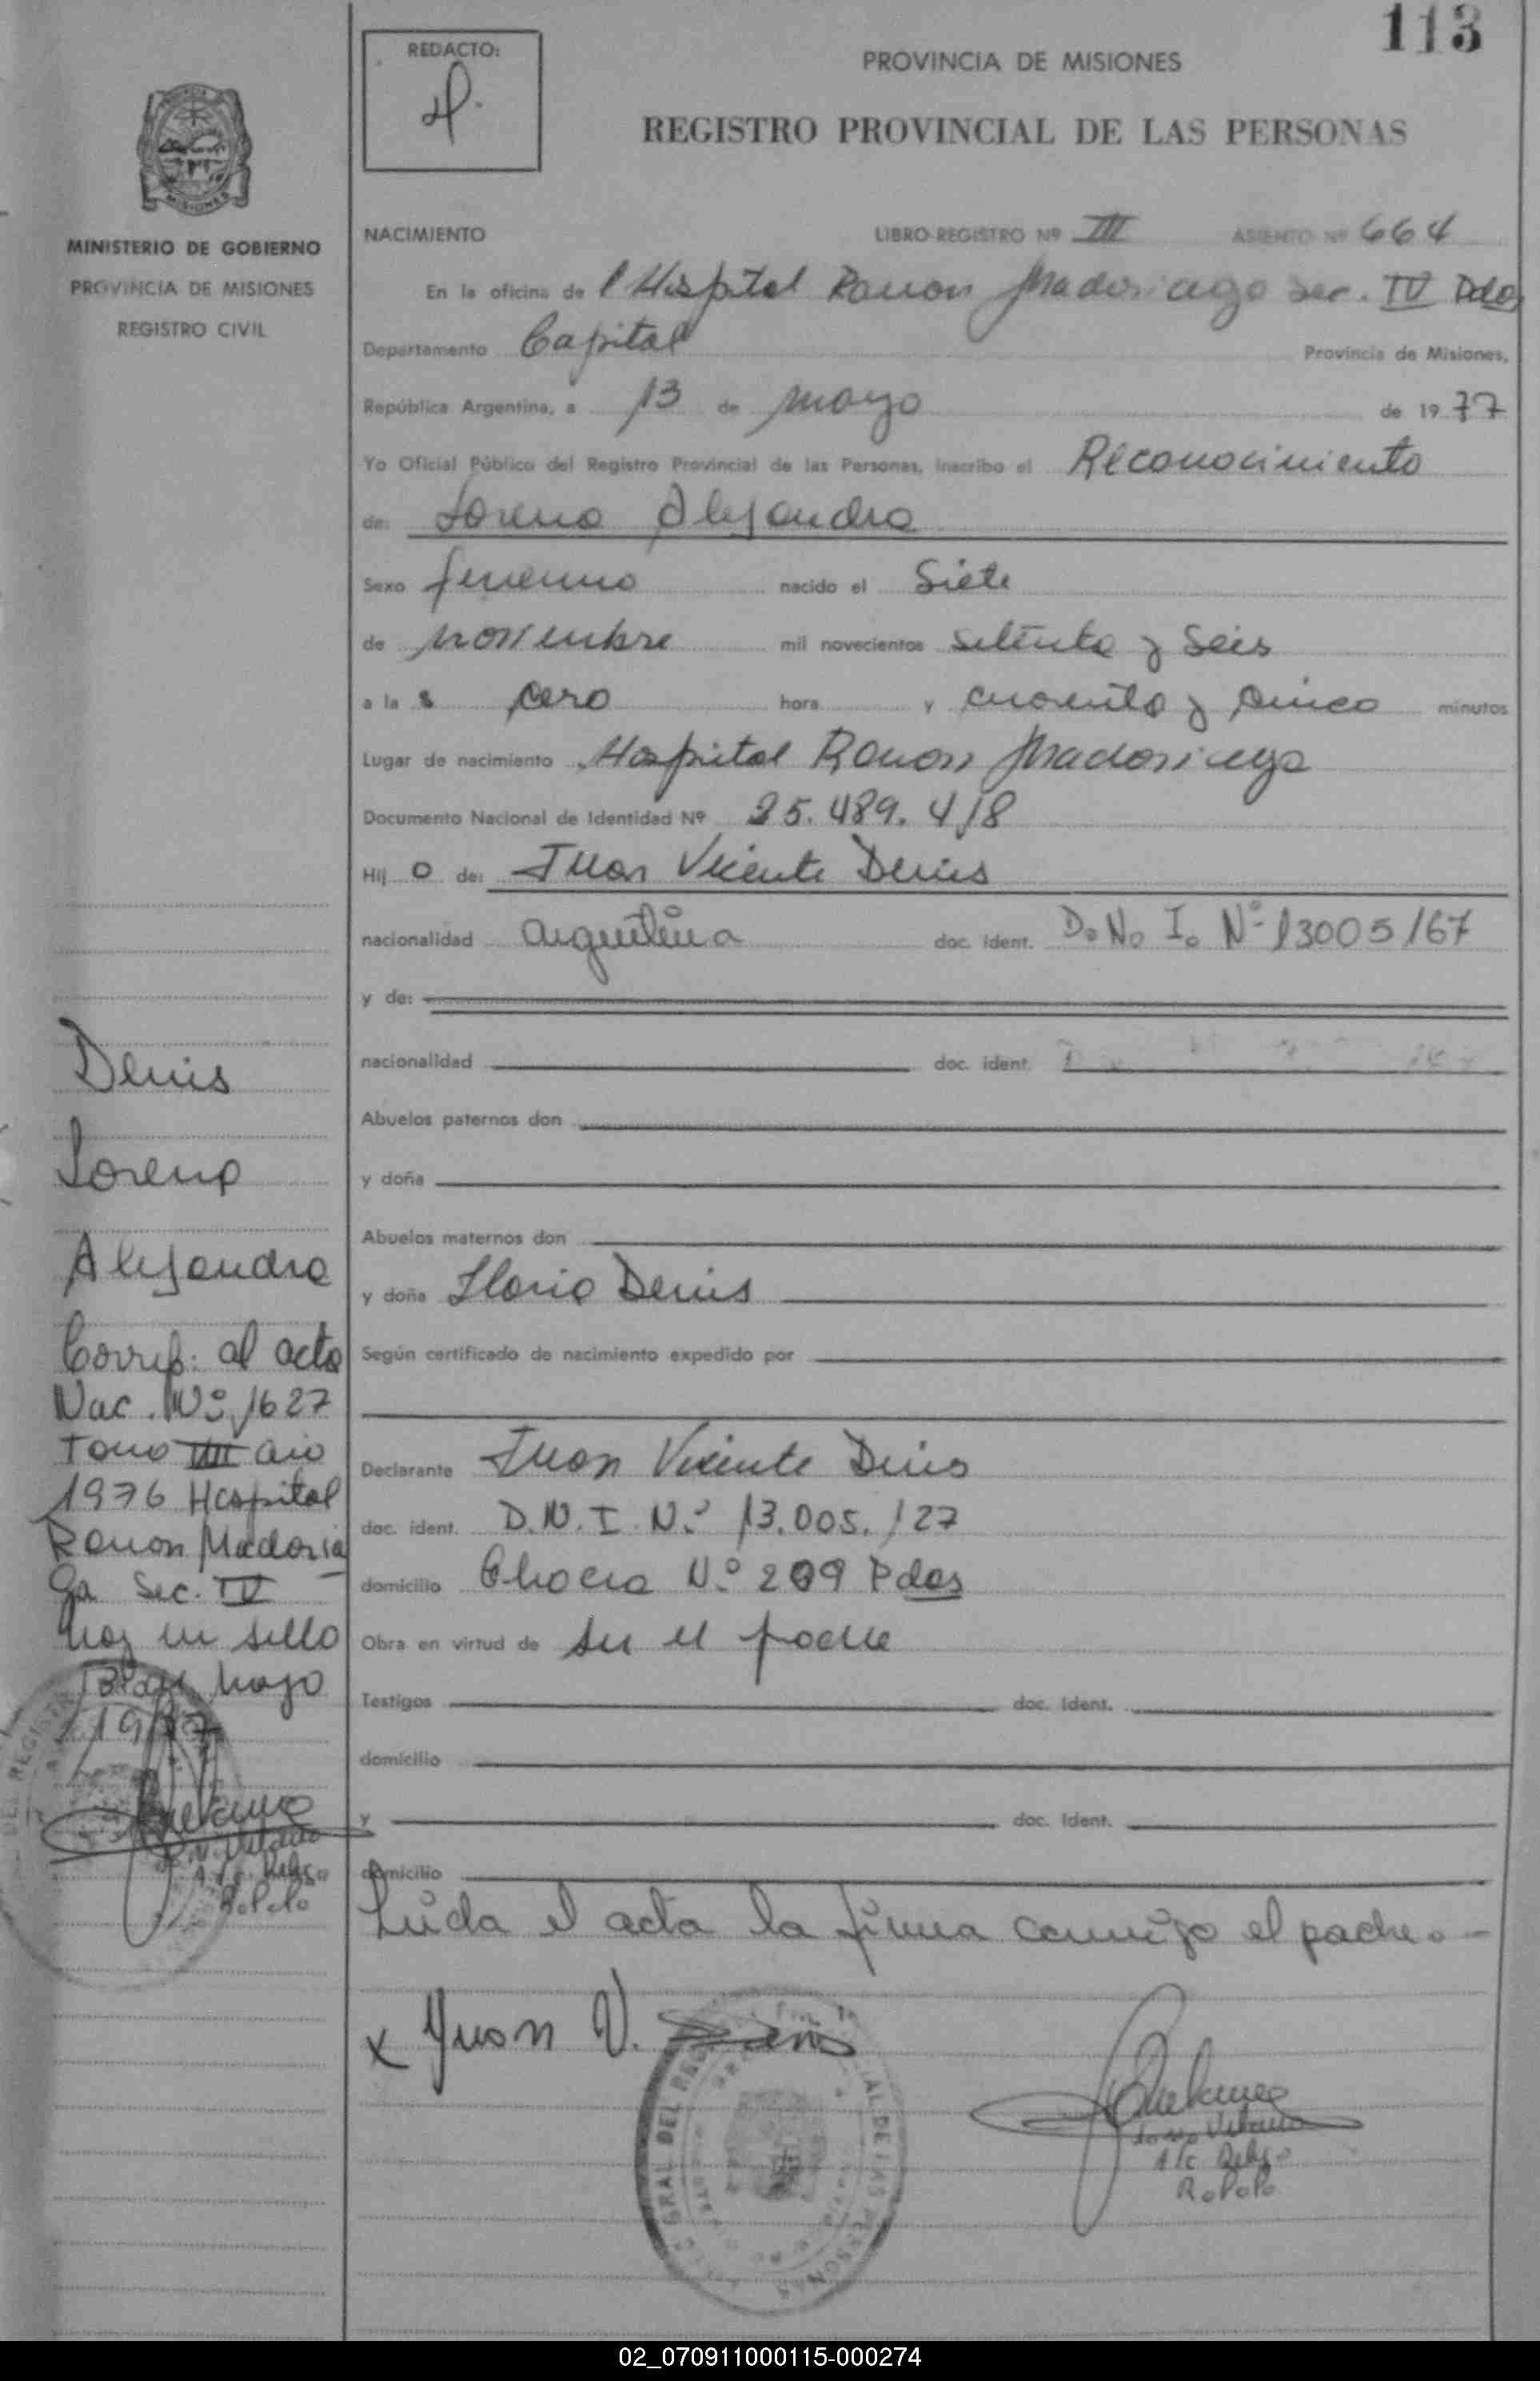 113
REDACTO:
PROVINCIA DE MISIONES
REGISTRO PROVINCIAL DE LAS PERSONAS
MISIONES
MINISTERIO DE GOBIERNO
PROVINCIA DE MISIONES
REGISTRO CIVIL
NACIMIENTO LIBRO-REGISTRO Nº III ASIENTO Nº 664
En la oficina de l Hospital Ramon Madariaga Sec. IV Pdas
Departamento Capital Provincia de Misiones,
República Argentina, a 13 de mayo de 1977
Yo Oficial Público del Registro Provincial de las Personas, inscribo el Reconocimiento
de: Lorena Alejandra
Sexo femenino nacido el Siete
de noviembre mil novecientos setenta y seis
a la s cero hora y cuarenta y cinco minutos
Lugar de nacimiento Hospital Ramon Madariaga
Documento Nacional de Identidad Nº 25.489.418
Hij a de: Juan Vicente Denis
nacionalidad argentina doc. ident. D.N.I. Nº 13005167
y de:
nacionalidad doc. ident.
Abuelos paternos don
y doña
Abuelos maternos don
y doña Ilaria Denis
Según certificado de nacimiento expedido por
Declarante Juan Vicente Denis
doc. ident. D.N.I. Nº 13.005.127
domicilio Chacra Nº 209 Pdas
Obra en virtud de ser el padre
Testigos doc. Ident.
domicilio
y doc. Ident.
domicilio
Leida el acta la firma conmigo el padre.-
x Juan V. Denis
A/c Deleg.
R.P.P.
Denis
Lorena
Alejandra
Corresp: al acta
Nac. Nº 1627
Tomo VIII año
1976 Hospital
Ramon Madaria
ga Sec. IV
Pdas mayo
1977
A/c Deleg.
R.P.P.
02_070911000115-000274